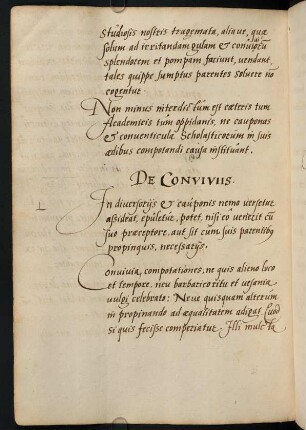 studiosis nostris tragemata, aliaue, quæ
solum ad irritandam gulam & conuiuiorũ
splendorem et pompam faciunt, uendant,
tales quippe sumptus parentes soluere nõ
cogentur
Non minus interdictum est cæteris tum
Academicis tum oppidanis, ne cauponas
& conuenticula Scholasticorum in suis
ædibus compotandi causa instituant.
DE CONVIVIIS.
In diuersorijs & cauponis nemo uersetur
assideat, epuletur, potet, nisi eo uenerit cũ
suo præceptore, aut sit cum suis parentibꝰ
propinquis, necessarijs.
Conuiuia, compotationes, ne quis alieno loco
et tempore, neu barbarico ritu et uesania
uulgi celebrato: Neue quisquam alterum
in propinando ad æqualitatem adigat. Quod
si quis fecisse comperiatur, Illi mulcta